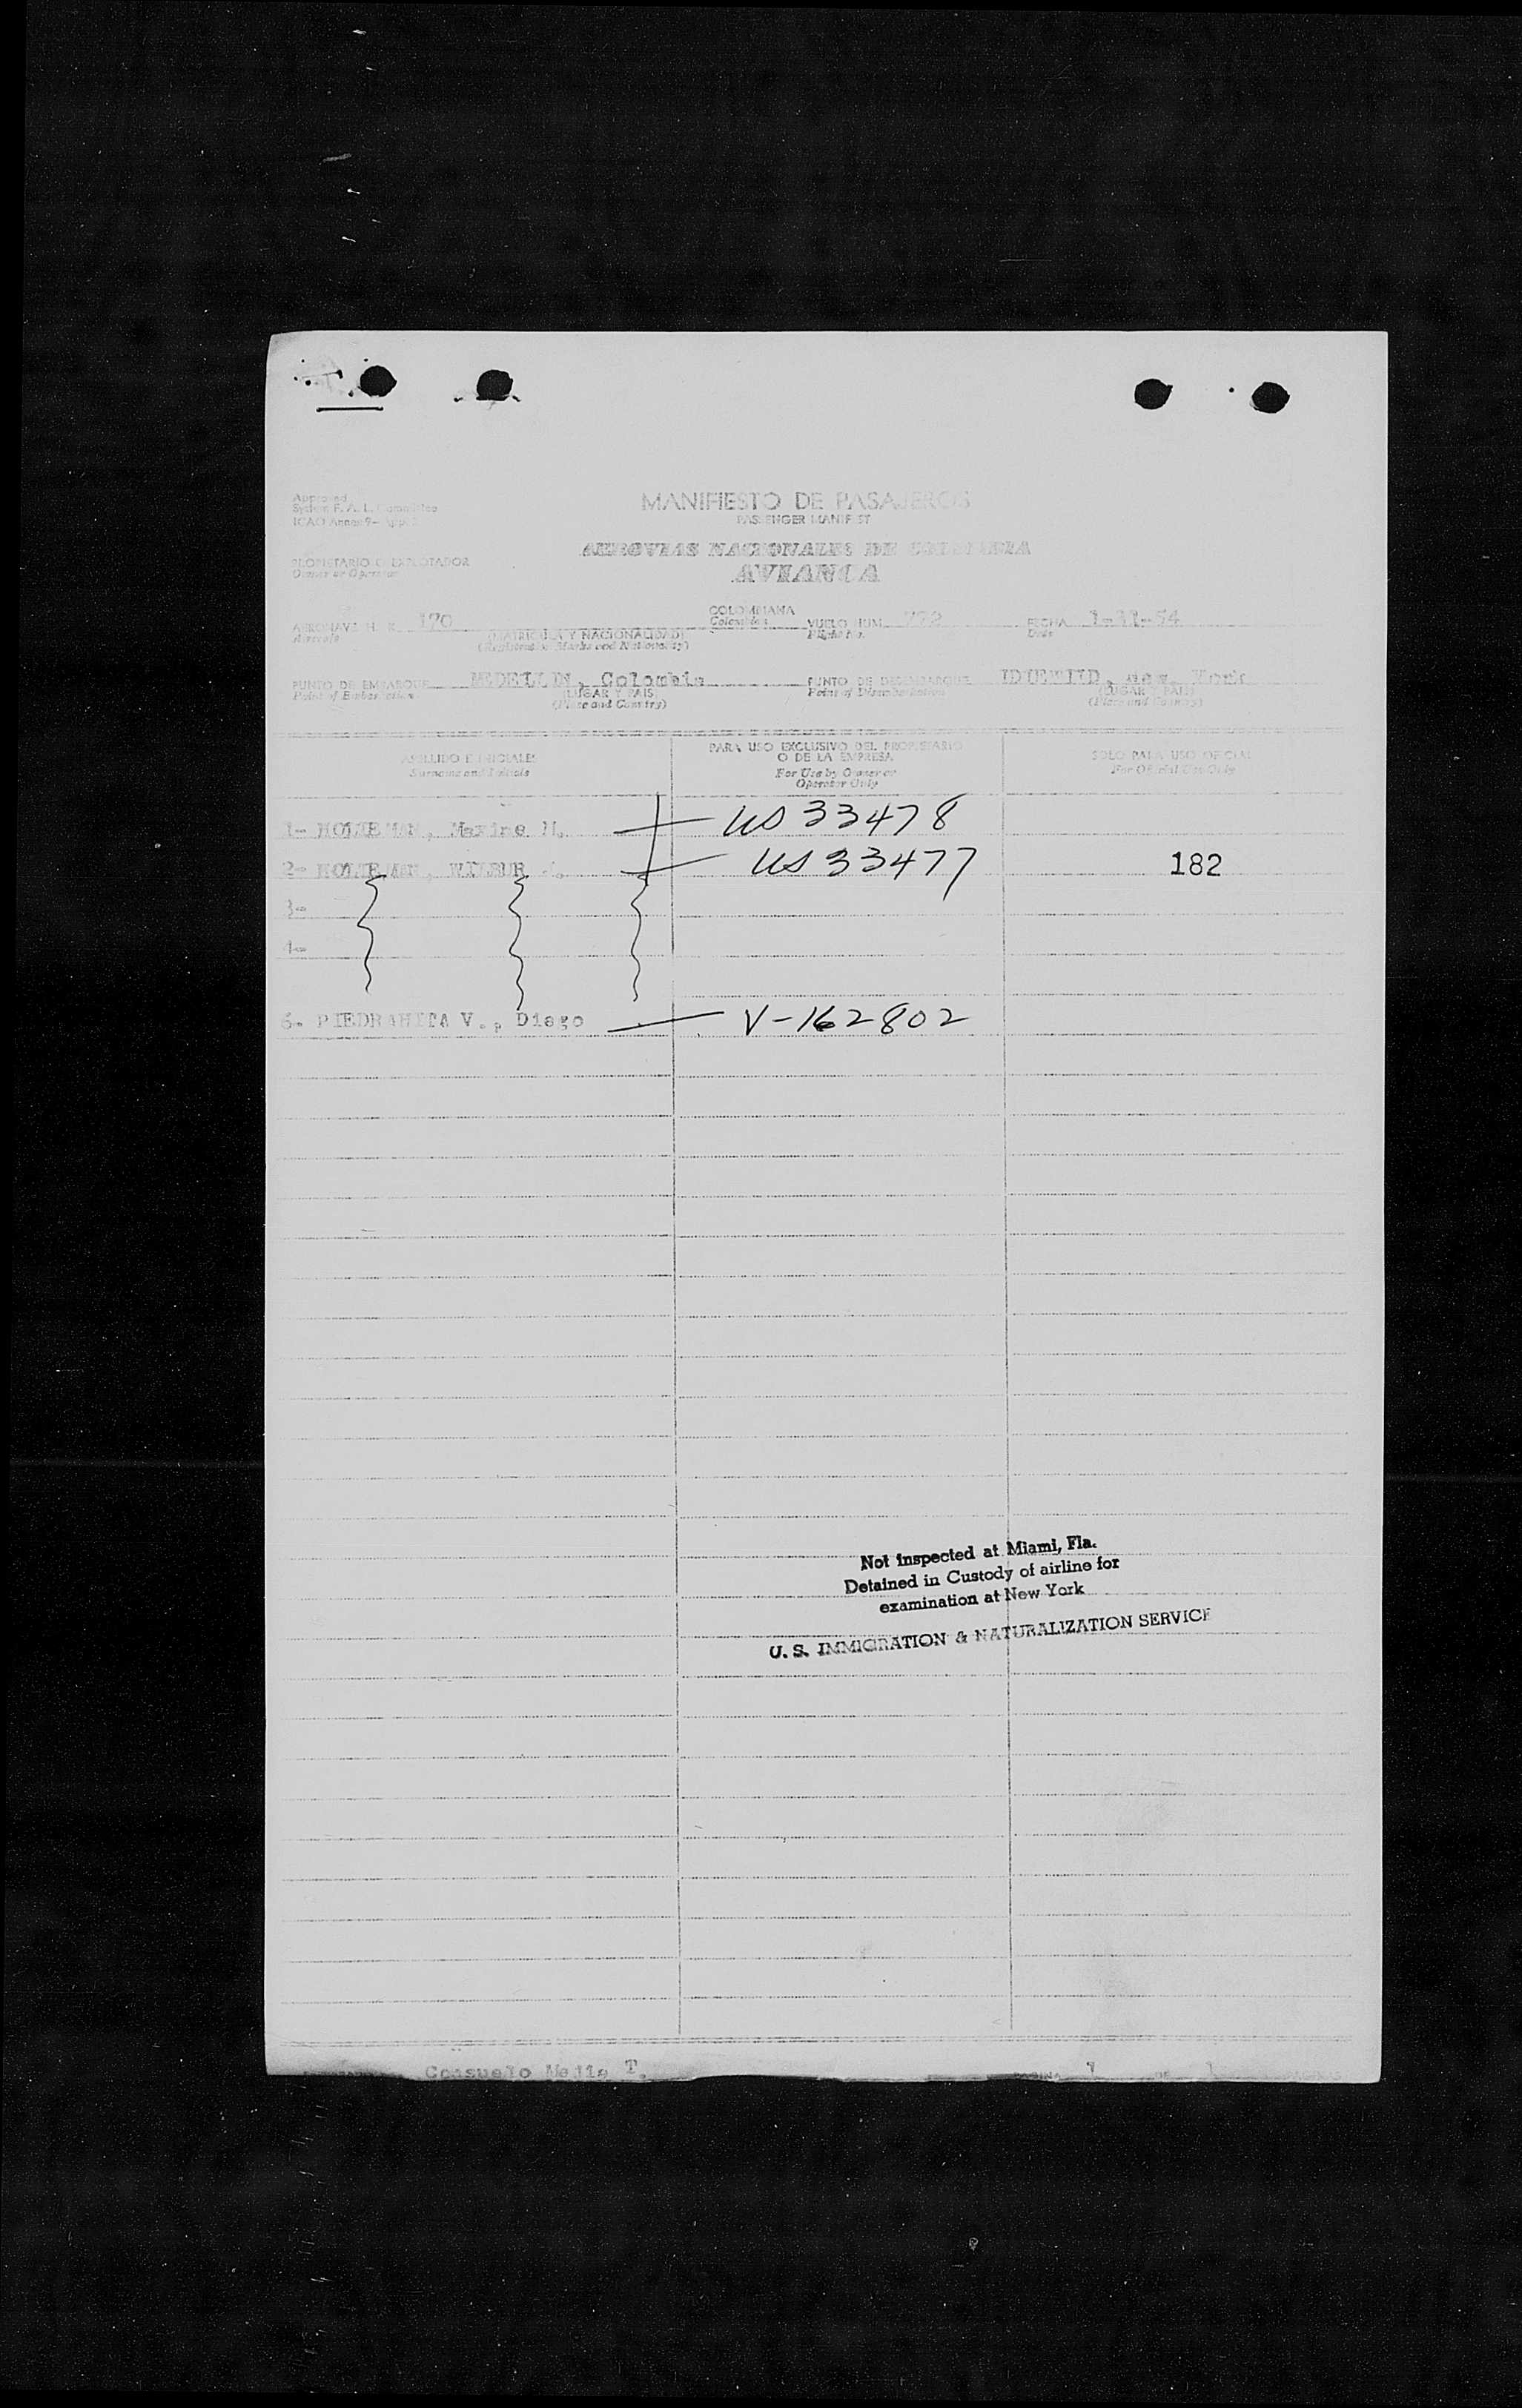 Approved
System F. A. L. Committee
ICAO Annex 9-
MANIFIESTO DE PASAJEROS
PASSENGER MANIFEST
AEROVIAS NACIONALES DE COLOMBIA
AVIANCA
PROPIETARIO O EXPLOTADOR
Owner or Operator
AERONAVE H. K. 170 COLOMBIANA VUELO NUM. 772 FECHA 1-11-54
Aircraft (MATRICULA Y NACIONALIDAD) Colombian Flight No. Date
(Registration Marks and Nationality)
PUNTO DE EMBARQUE MEDELLIN, Colombia PUNTO DE DESEMBARQUE IDLEWILD, New York
Point of Embarkation (LUGAR Y PAIS) Point of Disembarkation (LUGAR Y PAIS)
(Place and Country) (Place and Country)
APELLIDO E INICIALES PARA USO EXCLUSIVO DEL PROPIETARIO SOLO PARA USO OFICIAL
O DE LA EMPRESA
Surname and Initials For Use by Owner or For Official Use Only
Operator Only
1- HOLTEMAN, Maxine M. US 33478
2- HOLTEMAN, WILBUR US 33477 182
3-
4-
6- PIEDRAHITA V., Diego V-162802
Not inspected at Miami, Fla.
Detained in Custody of airline for
examination at New York
U. S. IMMIGRATION & NATURALIZATION SERVICE
Consuelo Mejia T. PAGINA 1 DE 1